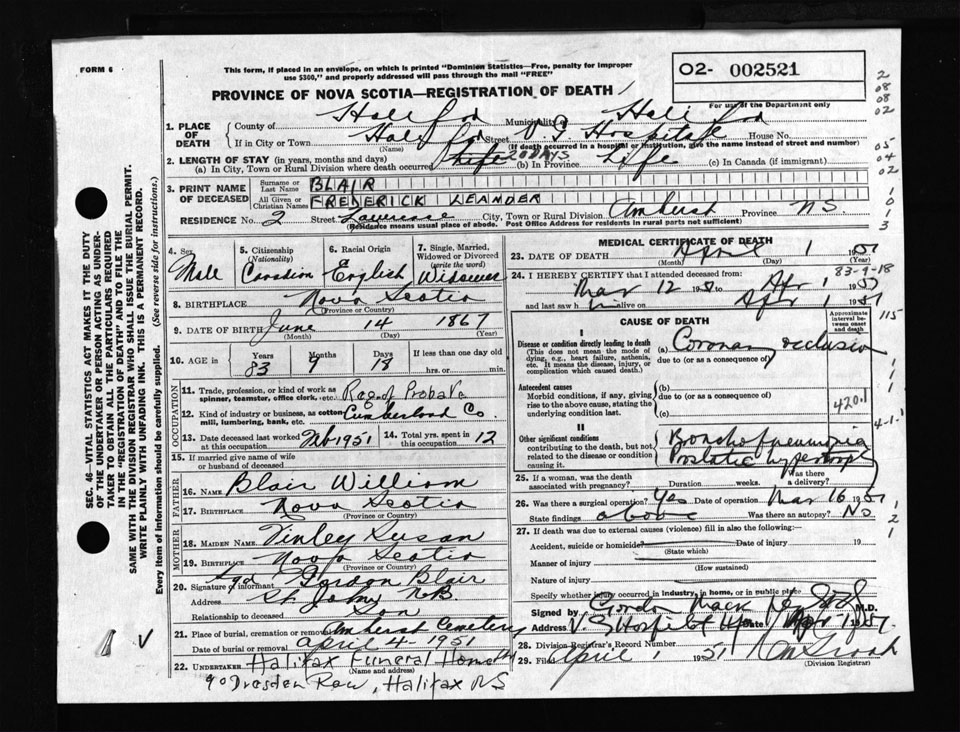 FORM 6
This form, if placed in an envelope, on which is printed "Dominion Statistics—Free, penalty for improper
use $300," and properly addressed will pass through the mail "FREE"
O2- 002521
PROVINCE OF NOVA SCOTIA—REGISTRATION OF DEATH
For use of the Department only
1. PLACE OF DEATH
County of Municipality
If in City or Town Street V.G. Hospital House No.
(Name) (If death occurred in a hospital or institution, give the name instead of street and number)
2. LENGTH OF STAY (in years, months and days)
(a) In City, Town or Rural Division where death occurred 20 days (b) In Province Life (c) In Canada (if immigrant)
3. PRINT NAME OF DECEASED
Surname or Last Name BLAIR
All Given or Christian Names FREDERICK LEANDER
RESIDENCE No. 2 Street Lawrence City, Town or Rural Division Amherst Province N.S.
(Residence means usual place of abode. Post Office Address for residents in rural parts not sufficient)
4. Sex Male
5. Citizenship (Nationality) Canadian
6. Racial Origin English
7. Single, Married, Widowed or Divorced (write the word) Widower
8. BIRTHPLACE Nova Scotia
(Province or Country)
9. DATE OF BIRTH June 14 1867
(Month) (Day) (Year)
10. AGE in Years Months Days If less than one day old
83 9 18 hrs. or min.
OCCUPATION
11. Trade, profession, or kind of work as spinner, teamster, office clerk, etc. Reg. of Probate
12. Kind of industry or business, as cotton mill, lumbering, bank, etc. Cumberland Co.
13. Date deceased last worked at this occupation Feb 1951
14. Total yrs. spent in this occupation 12
15. If married give name of wife or husband of deceased
FATHER
16. NAME Blair William
17. BIRTHPLACE Nova Scotia
(Province or Country)
MOTHER
18. MAIDEN NAME Susan
19. BIRTHPLACE Nova Scotia
(Province or Country)
20. Signature of informant Sgd Gordon Blair
Address St. John N.B.
Relationship to deceased Son
21. Place of burial, cremation or removal Amherst Cemetery
Date of burial or removal April 4 1951
22. UNDERTAKER Halifax Funeral Home
(Name and address)
90 Dresden Row, Halifax NS
MEDICAL CERTIFICATE OF DEATH
23. DATE OF DEATH April 1 1951
(Month) (Day) (Year)
83-9-18
24. I HEREBY CERTIFY that I attended deceased from:
Mar 12 1951 to Apr 1 1951
and last saw h alive on Apr 1 1951
CAUSE OF DEATH
Approximate interval between onset and death
I
Disease or condition directly leading to death
(This does not mean the mode of dying, e.g., heart failure, asthenia, etc. It means the disease, injury, or complication which caused death.)
(a) Coronary occlusion
due to (or as a consequence of)
Antecedent causes
Morbid conditions, if any, giving rise to the above cause, stating the underlying condition last.
(b)
due to (or as a consequence of)
(c)
420.1
II
Other significant conditions
contributing to the death, but not related to the disease or condition causing it.
Bronchopneumonia
Prostatic hypertrophy
25. If a woman, was the death associated with pregnancy? Duration weeks. Was there a delivery?
26. Was there a surgical operation? Yes Date of operation Mar 16 1951
State findings above Was there an autopsy? No
27. If death was due to external causes (violence) fill in also the following:—
Accident, suicide or homicide? Date of injury 19
(State which)
Manner of injury
(How sustained)
Nature of injury
Specify whether injury occurred in industry, in home, or in public place
Signed by Gordon M.D.
Address V.G. Hospital Date Apr 1 1951
28. Division Registrar's Record Number
29. Filed April 1 1951
(Division Registrar)
SEC. 46—VITAL STATISTICS ACT MAKES IT THE DUTY
OF THE UNDERTAKER OR PERSON ACTING AS UNDER-
TAKER TO OBTAIN ALL THE PARTICULARS REQUIRED
IN THE "REGISTRATION OF DEATH" AND TO FILE IT
WITH THE DIVISION REGISTRAR WHO SHALL ISSUE THE BURIAL PERMIT.
WRITE PLAINLY WITH UNFADING INK. THIS IS A PERMANENT RECORD.
Every item of information should be carefully supplied. (See reverse side for instructions.)